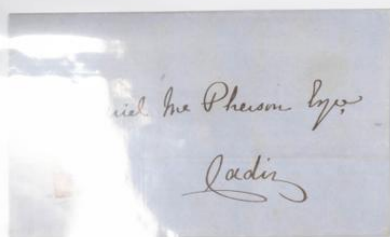 Mc Pherson Esqre
Cadiz